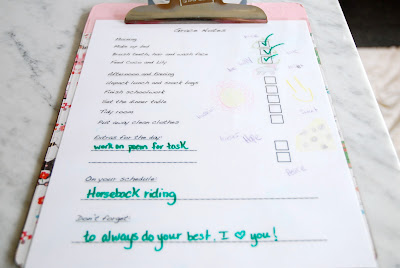 Morning
Make up bed
Brush teeth, hair and wash face
Feed Coco and Lily
Afternoon and Evening
Unpack lunch and snack bags
Finish schoolwork
Set the dinner table
Tidy room
Put away clean clothes
Extras for the day:
work on poem for task
On your schedule:
Horseback riding
Don't forget:
to always do your best. I ♡ you!